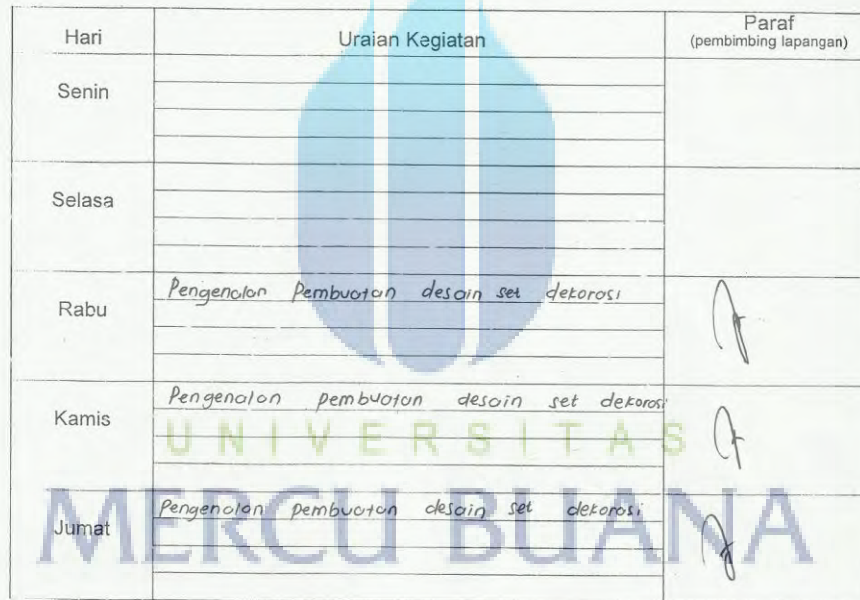 Hari Uraian Kegiatan Paraf
(pembimbing lapangan)
Senin
Selasa
Rabu Pengenalan Pembuatan desain set dekorasi
Kamis Pengenalan pembuatan desain set dekorasi
UNIVERSITAS
Jumat Pengenalan pembuatan desain set dekorasi
MERCU BUANA